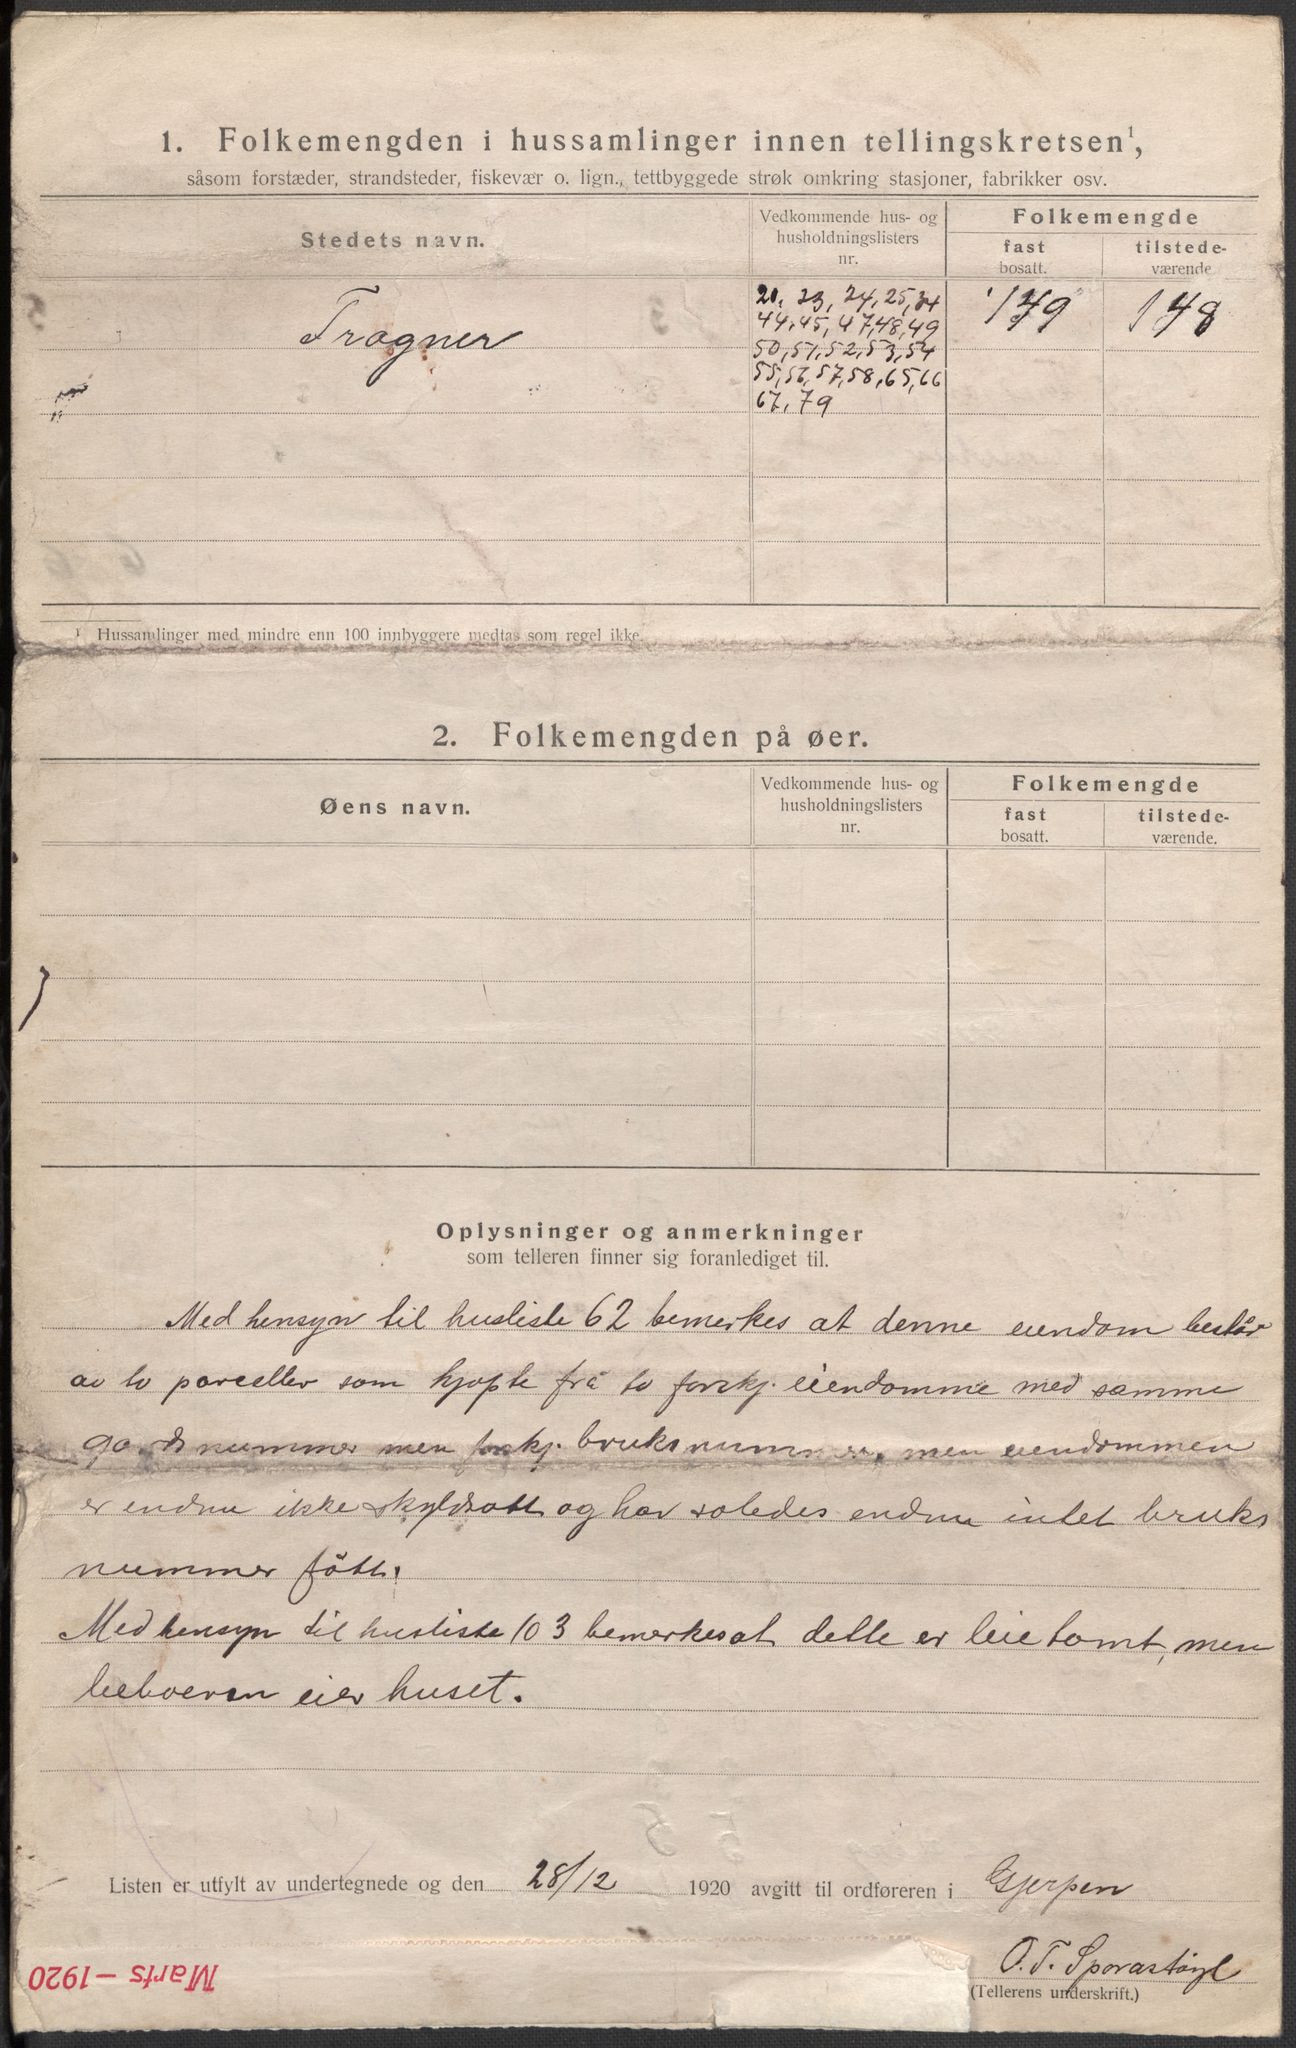 1. Folkemengden i hussamlinger innen tellingskretsen¹,
såsom forstæder, strandsteder, fiskevær o. lign., tettbyggede strøk omkring stasjoner, fabrikker osv.
Stedets navn.
Vedkommende hus- og husholdningslisters nr.
Folkemengde
fast bosatt.
tilstede-værende
Frogner
20, 23, 24, 25, 34
44, 45, 47, 48, 49
50, 51, 52, 53, 54
55, 56, 57, 58, 65, 66
67, 79
149
148
¹ Hussamlinger med mindre enn 100 innbyggere medtas som regel ikke.
2. Folkemengden på øer.
Øens navn.
Vedkommende hus- og husholdningslisters nr.
Folkemengde
fast bosatt.
tilstede-værende.
Oplysninger og anmerkninger
som telleren finner sig foranlediget til.
Med hensyn til husliste 62 bemerkes at denne eiendom består
av to parceller som kjøpte frå to forskj. eiendomme med samme
gårdsnummer men forskj. bruksnummer, men eiendommen
er endnu ikke skyldsatt og har således endnu intet bruks
nummer fått.
Med hensyn til husliste 103 bemerkes at dette er leietomt, men
beboeren eier huset.
Listen er utfylt av undertegnede og den 28/12 1920 avgitt til ordføreren i Gjerpen
O. T. Sporastøyl
(Tellerens underskrift.)
Marts – 1920